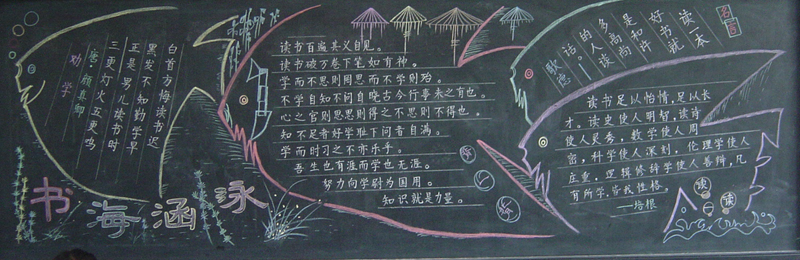 劝学
唐·颜真卿
三更灯火五更鸡
正是男儿读书时
黑发不知勤学早
白首方悔读书迟
书海涵泳
读书百遍其义自见。
读书破万卷下笔如有神。
学而不思则罔思而不学则殆。
不学自知不问自晓古今行事未之有也。
心之官则思思则得之不思则不得也。
知不足者好学耻下问者自满。
学而时习之不亦乐乎。
吾生也有涯而学也无涯。
努力向学尉为国用。
知识就是力量。
名言
读一本
好书就
是和许
多高尚
的人谈
话。——
歌德
读书足以怡情,足以长
才。读史使人明智,读诗
使人灵秀,数学使人周
密,科学使人深刻,伦理学使人
庄重,逻辑修辞学使人善辩,凡
有所学,皆成性格。
——培根
读一读